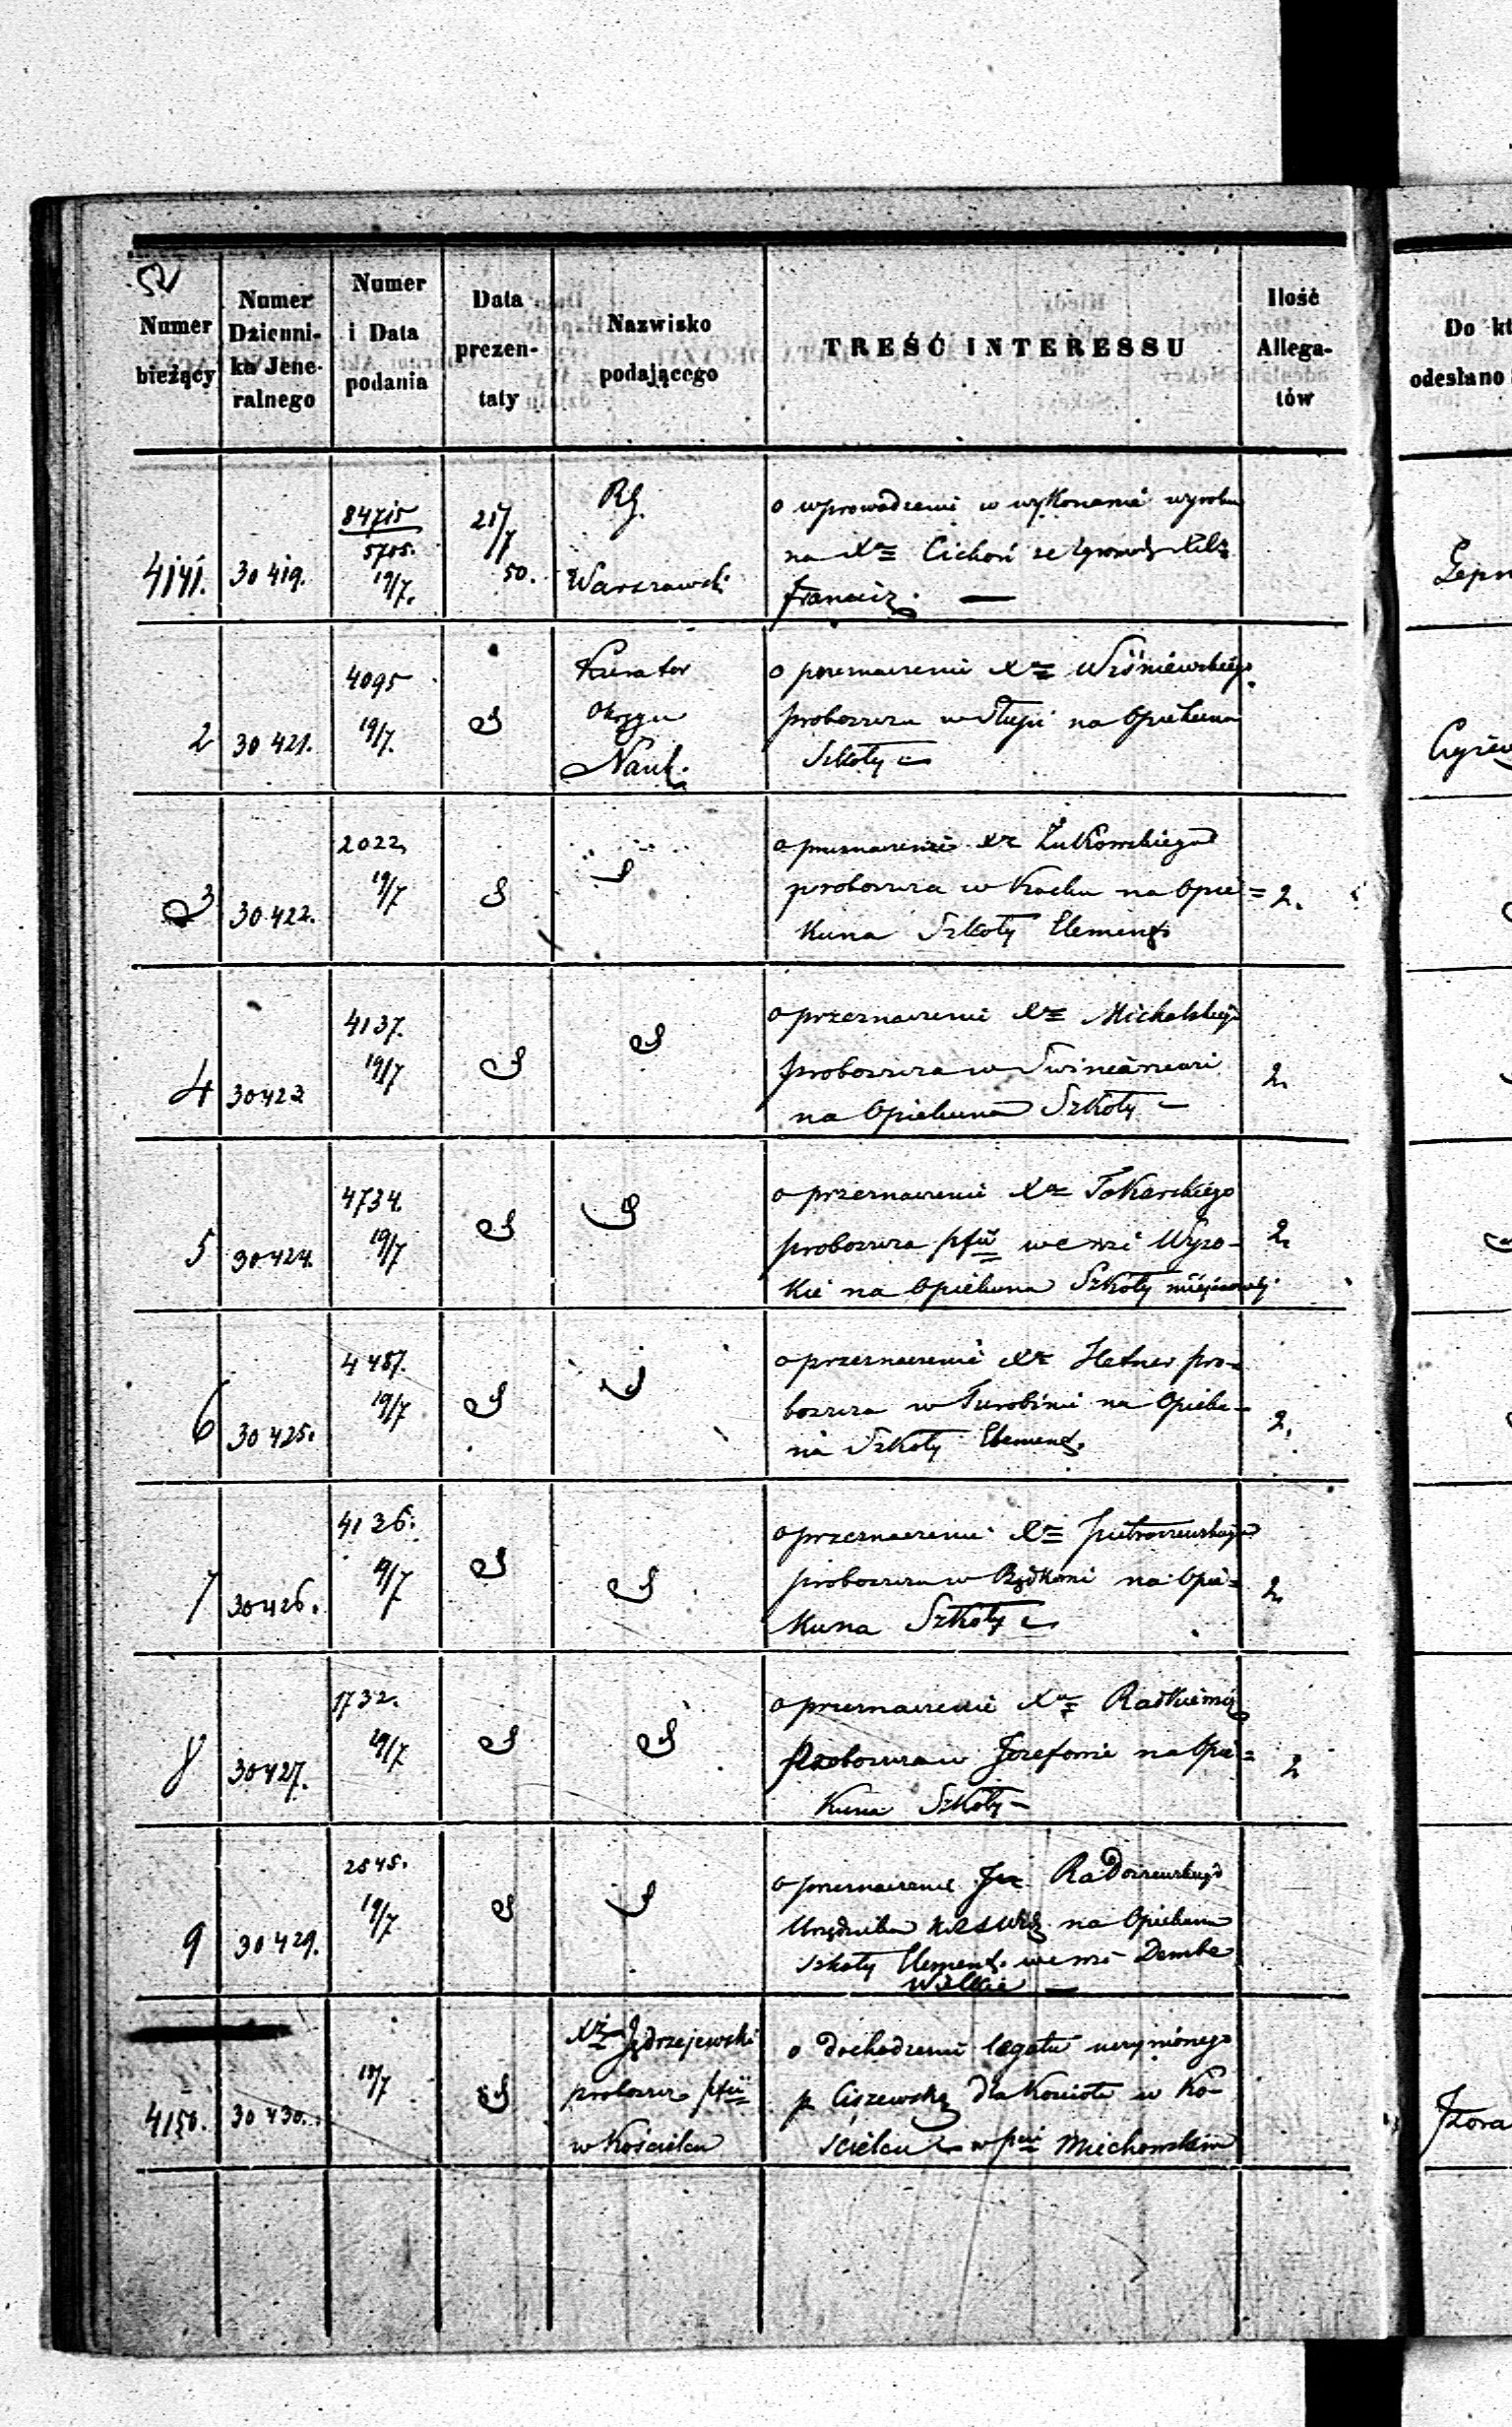 52
Numer bieżący
Numer Dzienni- ka Jene- ralnego
Numer i Data podania
Data prezen- taty
Nazwisko podającego
TREŚĆ INTERESSU
Ilość Allega- tów
Do kt
odesłano
4141. 30 419. 84715 5705. 19/7. 21/7 50. RG. Warszawski
o wprowadzenie w wykonanie wyroku
na Xa Cichoń ze
Francisz.
2 30 421. 4095 19/7. Kurator Okręgu Nauk.
o przeznaczenie Xa Wiśniewskiego
proboszcza w Słupi na Opiekuna
Szkoły
3 30 422. 2022 19/7
o przeznaczenie Xa Żułkowskiego
proboszcza w Kocku na Opie= 2.
kuna Szkoły Element
4 30423 4137. 19/7
o przeznaczenie Xa Michalskiego
proboszcza w
na Opiekuna Szkoły 2.
5 30424. 4734. 19/7
o przeznaczenie Xa Tokarskiego
proboszcza pfii we wsi Wyso- 2.
kie na Opiekuna Szkoły miejscowej
6 30 425. 4487. 19/7
o przeznaczenie Xa Hetner pro-
boszcza w Turobinie na Opieku-
na Szkoły Element. 2.
7 30426. 4126. 19/7
o przeznaczenie Xa
proboszcza w na Opie= 2.
kuna Szkoły
8 30427. 1732. 19/7
o przeznaczenie Xa
Proboszcza w Jozefowie na Opie= 2
kuna Szkoły
9 30429. 2545. 19/7
o przeznaczenie Radoszewskiego
Urzędnika na Opiekuna
Szkoły Element. we wsi Dembe
Wielkie
4150. 30 430. 18/7 Xz Jędrzejewski proboszcz pfii w Kościelcu
o dochodzenie legatu uczynionego
p. Ciszewską dla Kościoła w Ko-
ścielcu w pcie Miechowskim